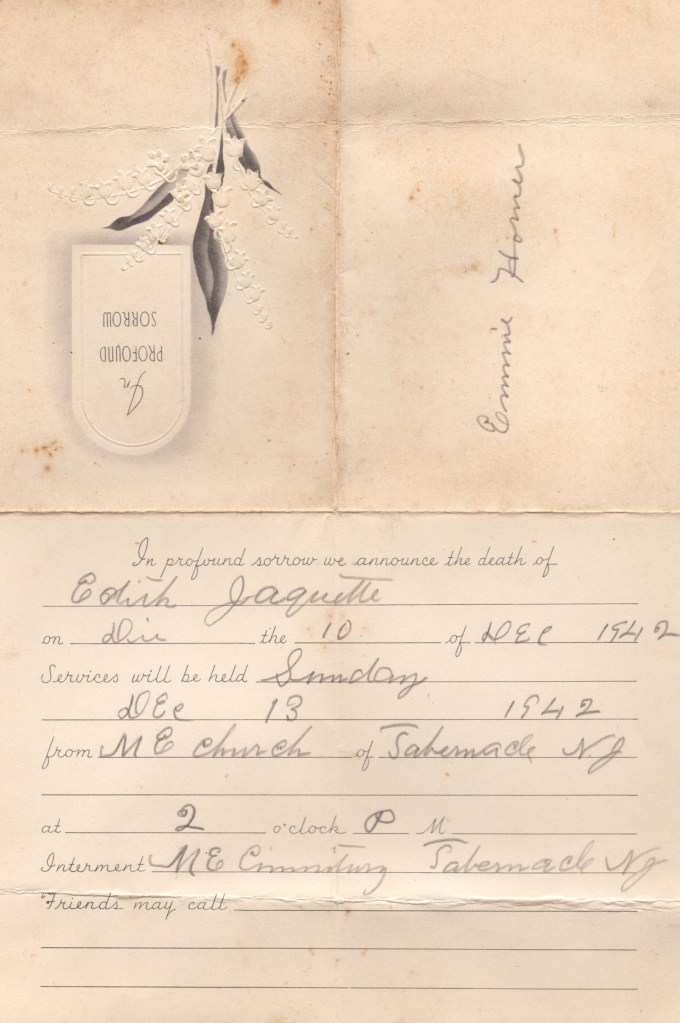 In
PROFOUND
SORROW
Emmie Horner
In profound sorrow we announce the death of
Edith Jaquette
on Die the 10 of DEC 1942
Services will be held Sunday
DEc 13 1942
from ME church of Tabernacle N.J
at 2 o'clock P M.
Interment ME Cimmitury Tabernacle NJ
Friends may call